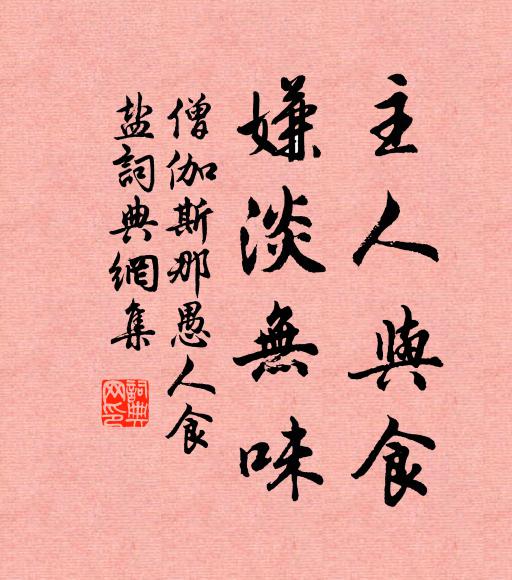 主人與食
嫌淡無味
僧伽斯那愚人食
盐詞典網集
詞典
网印